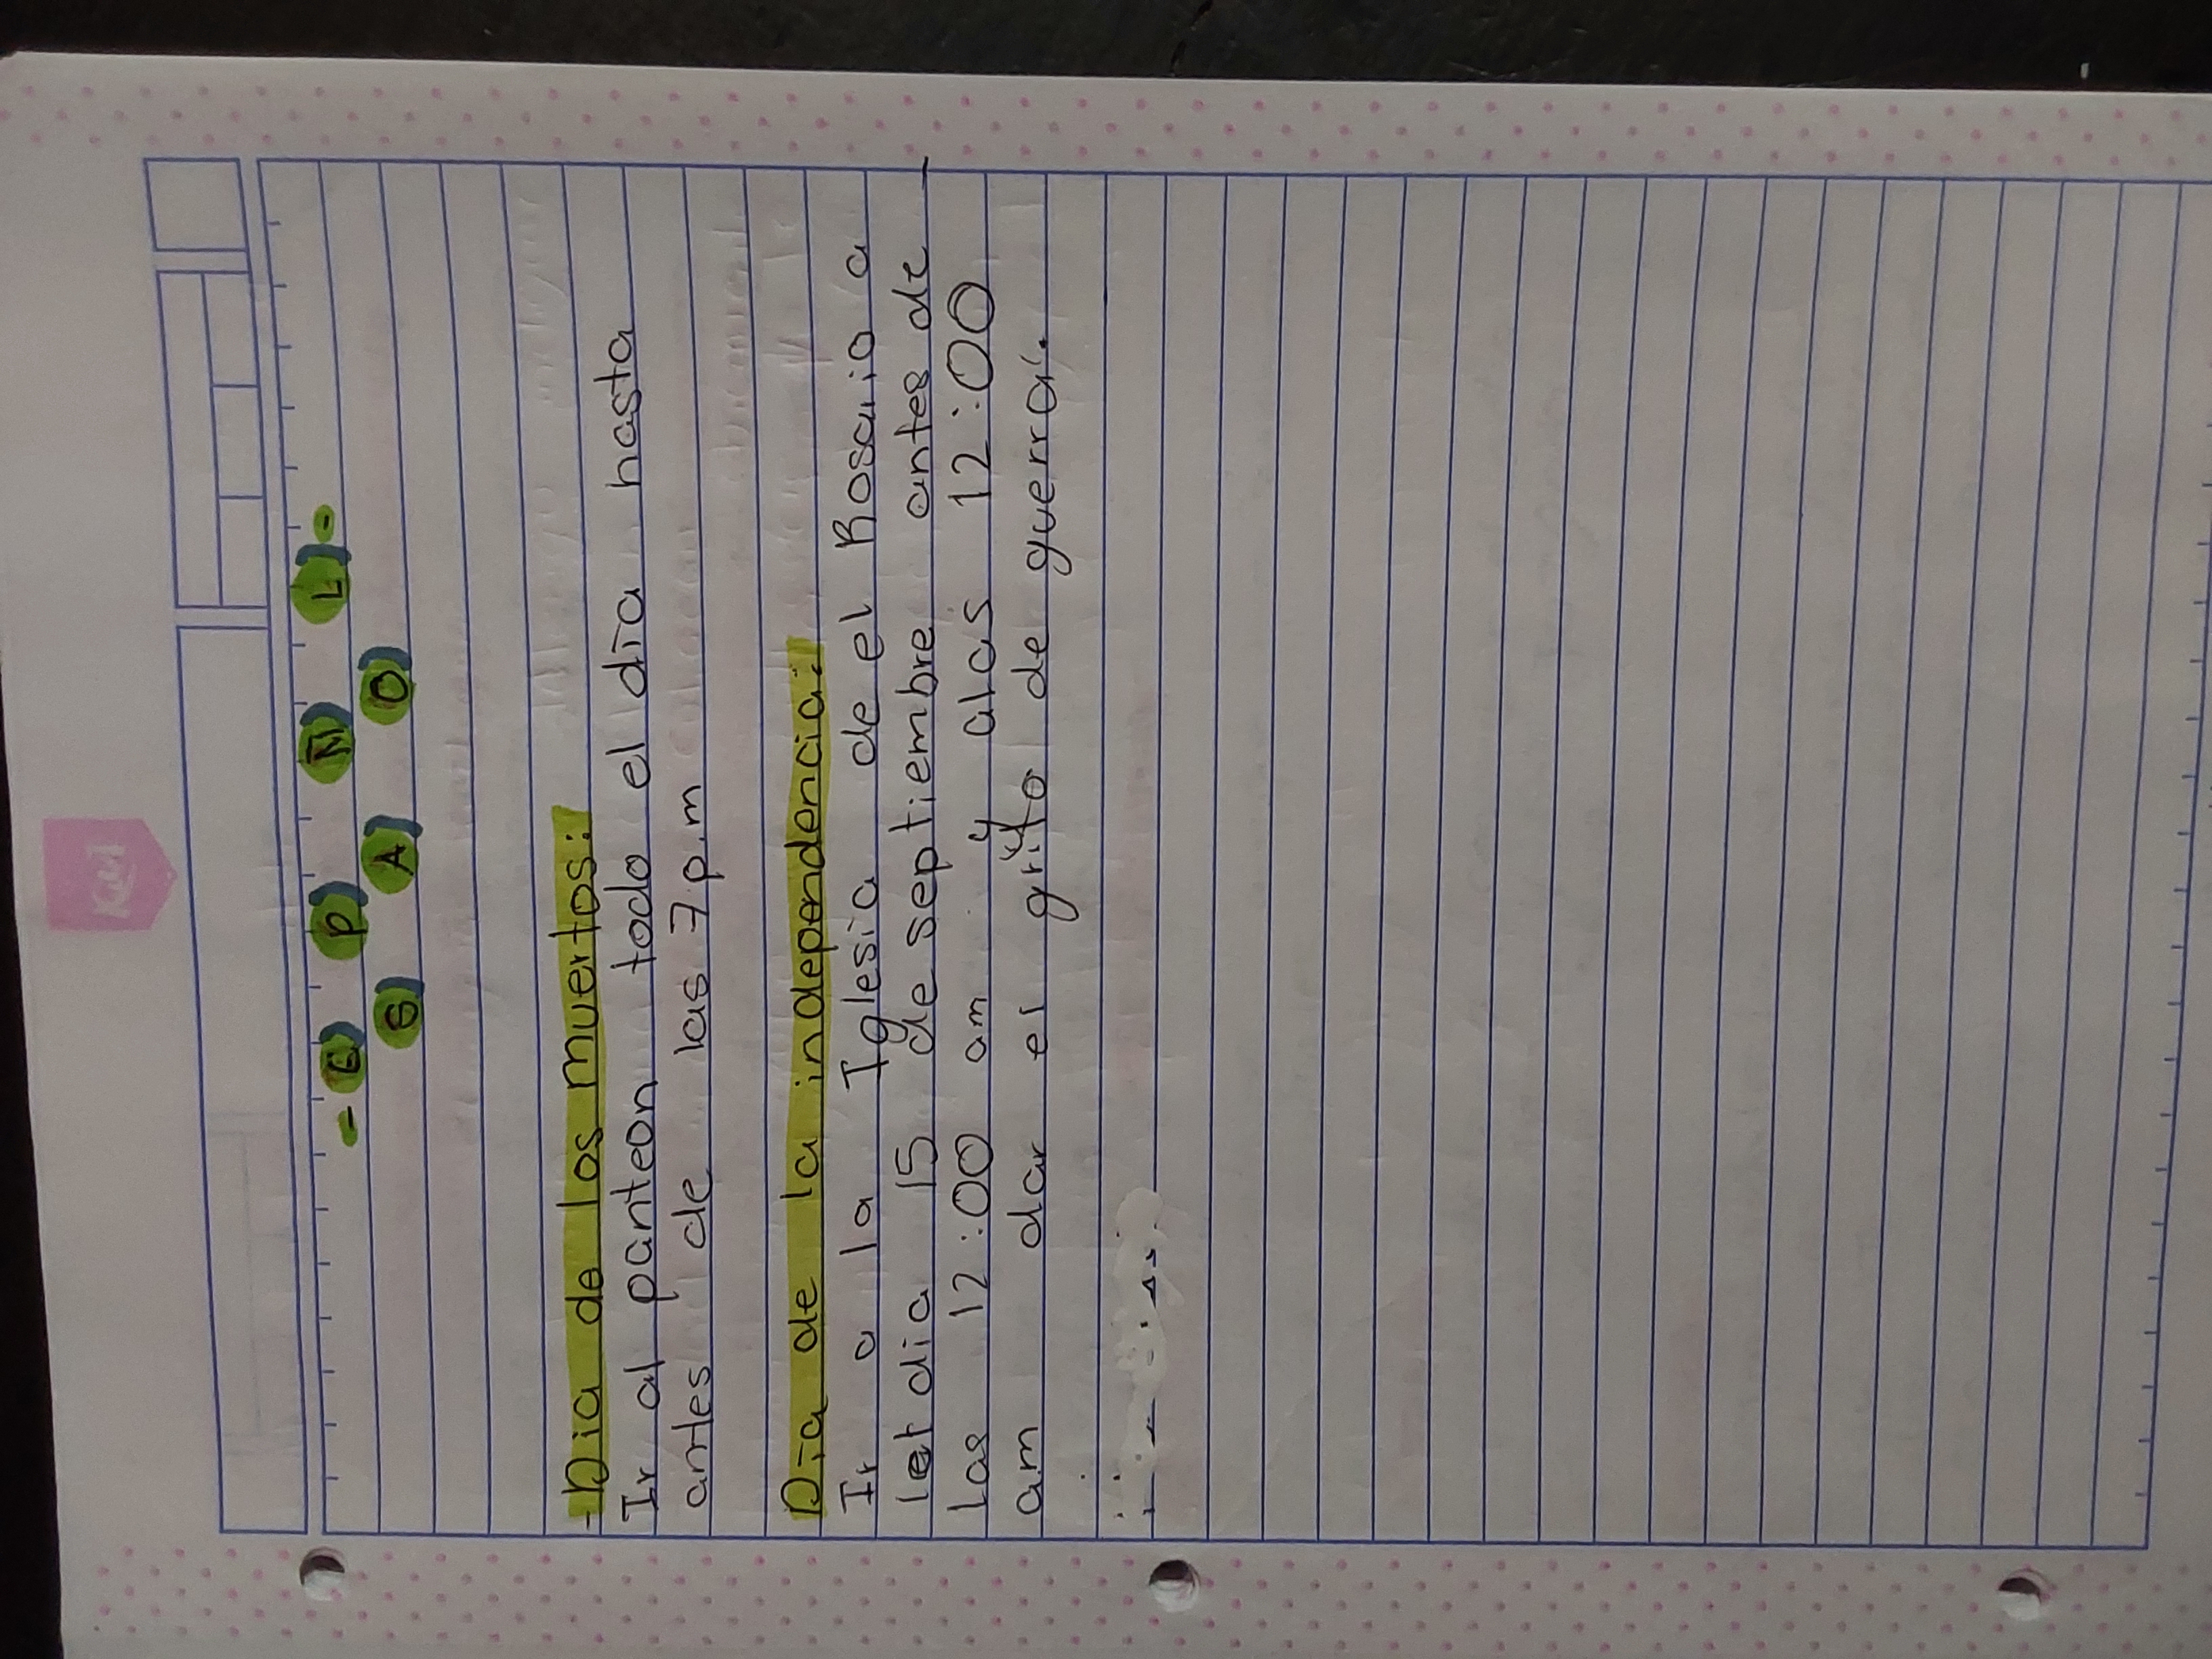 Kiut
- ESPAÑOL -
- Dia de los muertos:
Ir al panteon todo el dia hasta
antes de las 7 p.m
Dia de la independencia:
Ir a la Iglesia de el Rosario a
el dia 15 de septiembre antes de
las 12:00 am y alas 12:00
am dar el grito de guerra.